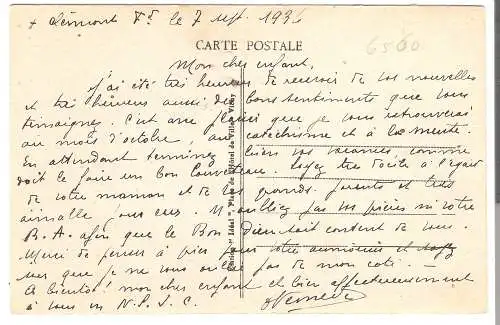 + Clermont Fd. le 7 sept. 1936
CARTE POSTALE
6500
Mon cher enfant,
J'ai été très heureux de recevoir de vos nouvelles
et très heureux aussi des bons sentiments que vous
témoignez. C'est avec plaisir que je vous retrouverai
au mois d'octobre, au catéchisme et à la meute.
En attendant terminez bien vos vacances comme
doit le faire un bon louveteau. Soyez très docile à l'égard
de votre maman et de vos grands-parents et très
aimable pour eux. N'oubliez pas vos prières ni votre
B.A. afin que le Bon Dieu soit content de vous.
Merci de penser à prier pour votre aumônier et
sûr que je ne vous oublie pas de mon côté.
A bientôt ! mon cher enfant et bien affectueusement
à vous en N.S.J.C.
Edition "Idéal", Place de l'Hôtel de Ville, Vichy